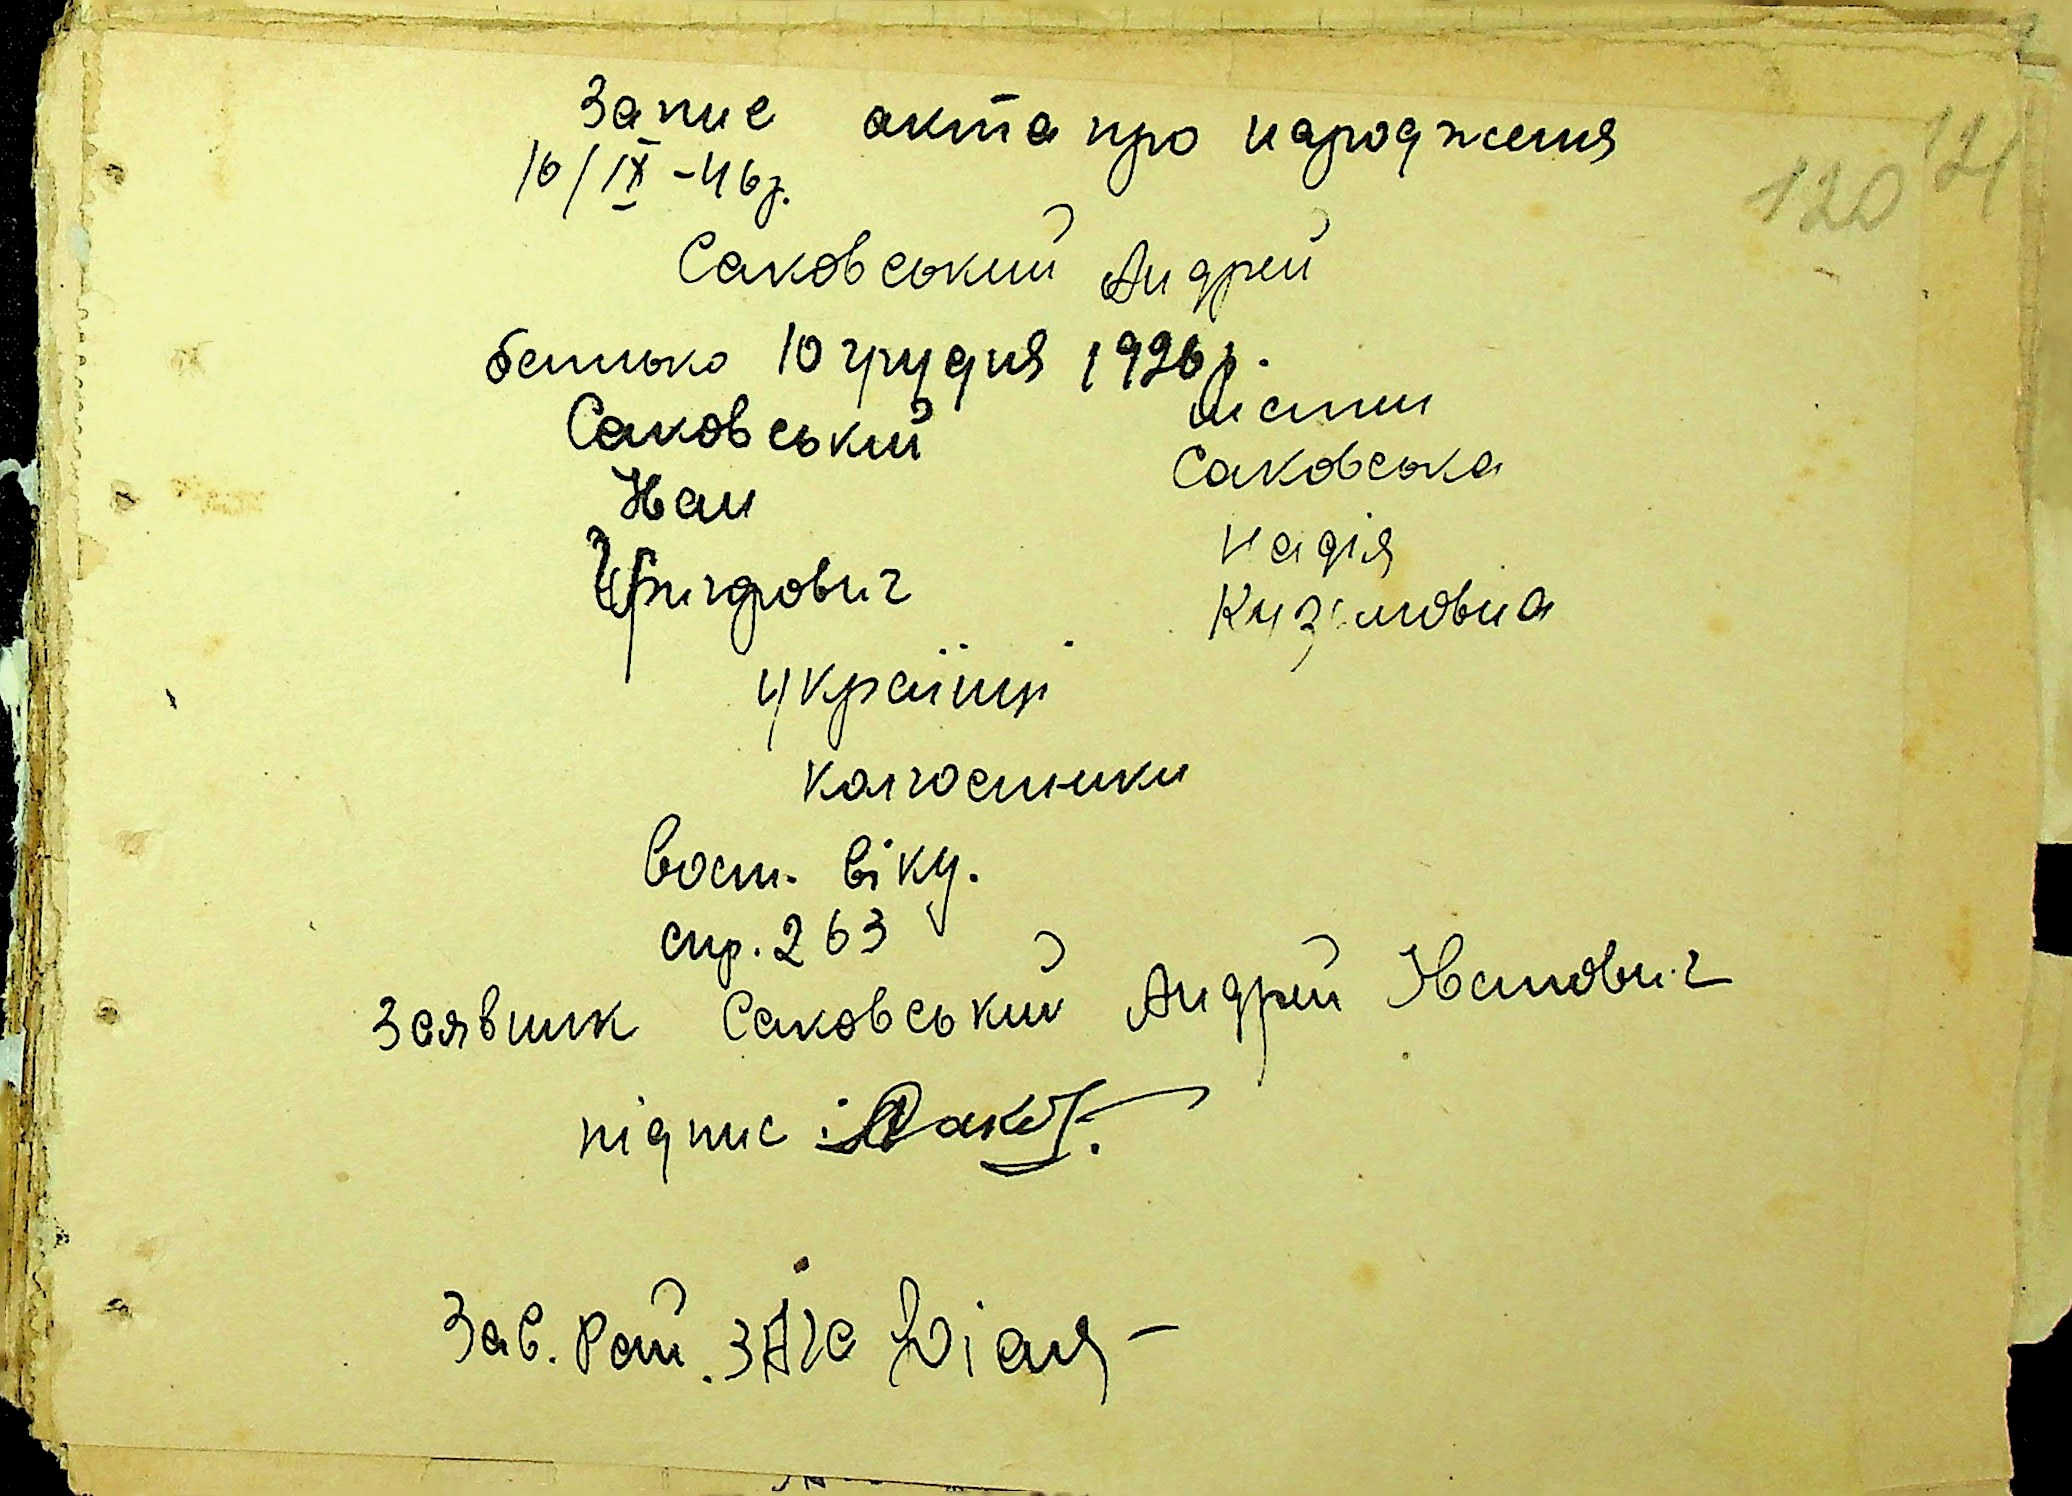 Запис акта про народження
16/IX -46р.
120 121
Саковський Андрей
батько 10 грудня 1926 р.
мати
Саковський
Саковська
Иван
Надія
Кузьмовна
українці
колгоспники
Восст. віку.
спр. 263
Заявник Саковський Андрей Иванович
підпис: Сак
Зав. Рай. ЗАГС